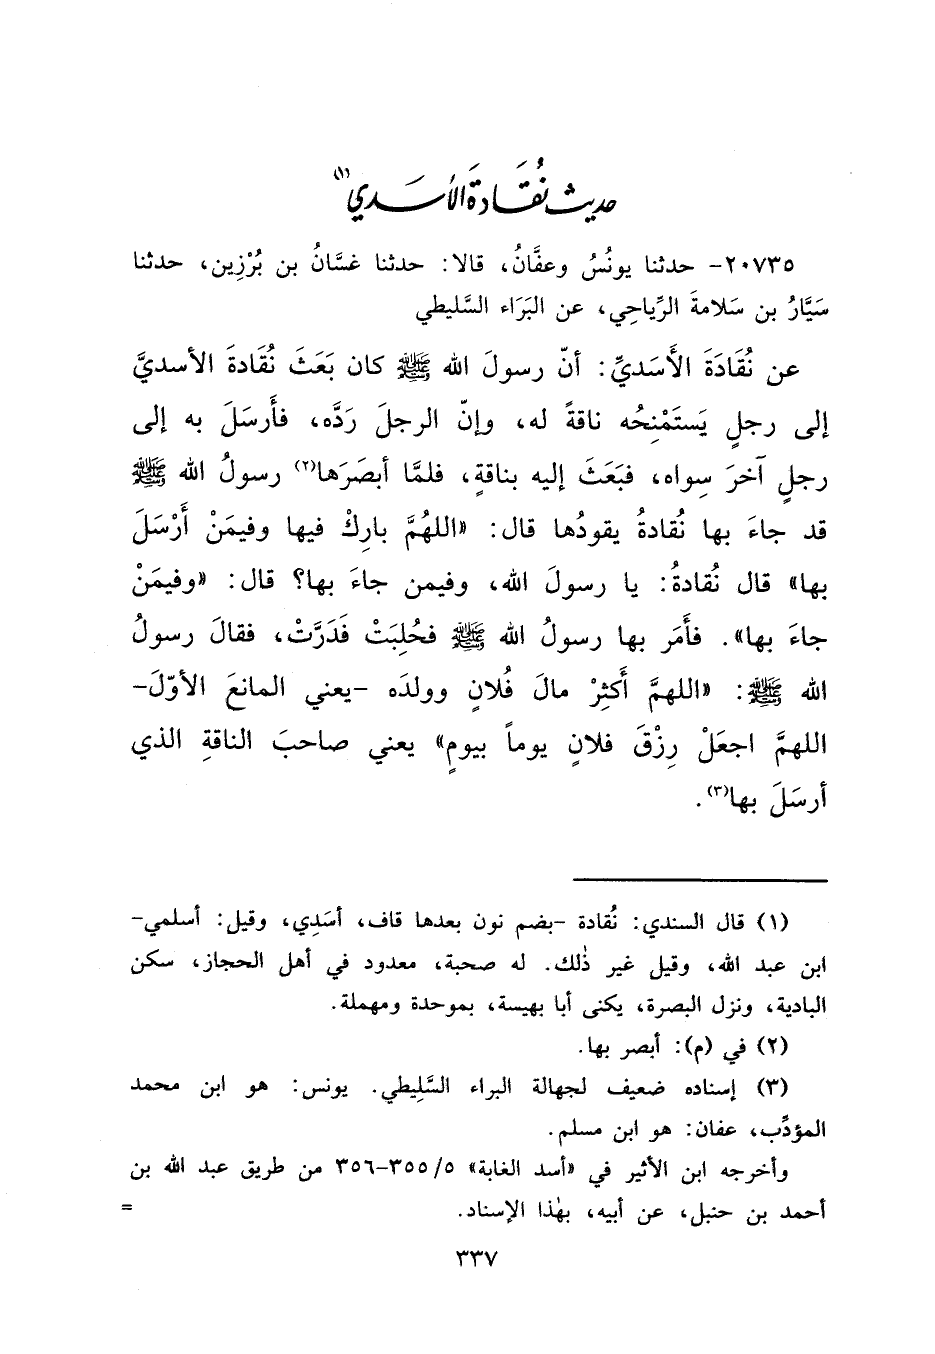 حديث نُقَادَةَ الأَسَدي(١)
٢٠٧٣٥- حدثنا يونُسُ وعفَّانُ، قالا: حدثنا غسَّانُ بن بُرْزِين، حدثنا
سَيَّارُ بن سَلامةَ الرِّياحِي، عن البَرَاء السَّليطي
عن نُقَادَةَ الأَسَديِّ: أنّ رسولَ الله ﷺ كان بَعَثَ نُقَادةَ الأسديَّ
إلى رجلٍ يَستَمْنِحُه ناقةً له، وإنّ الرجلَ رَدَّه، فأَرسَلَ به إلى
رجلٍ آخرَ سِواه، فبَعَثَ إليه بناقةٍ، فلمَّا أبصَرَها(٢) رسولُ الله ﷺ
قد جاءَ بها نُقادةُ يقودُها قال: «اللهُمَّ بارِكْ فيها وفيمَنْ أَرْسَلَ
بها» قال نُقادةُ: يا رسولَ الله، وفيمن جاءَ بها؟ قال: «وفيمَنْ
جاءَ بها». فأَمَر بها رسولُ الله ﷺ فحُلِبَتْ فَدَرَّتْ، فقالَ رسولُ
الله ﷺ: «اللهمَّ أَكثِرْ مالَ فُلانٍ وولدَه -يعني المانعَ الأوّلَ-
اللهمَّ اجعَلْ رِزْقَ فلانٍ يوماً بيومٍ» يعني صاحبَ الناقةِ الذي
أرسَلَ بها(٣).
(١) قال السندي: نُقادة -بضم نون بعدها قاف، أسَدِي، وقيل: أسلمي-
ابن عبد الله، وقيل غير ذٰلك. له صحبة، معدود في أهل الحجاز، سكن
البادية، ونزل البصرة، يكنى أبا بهيسة، بموحدة ومهملة.
(٢) في (م): أبصر بها.
(٣) إسناده ضعيف لجهالة البراء السَّلِيطي. يونس: هو ابن محمد
المؤدِّب، عفان: هو ابن مسلم.
وأخرجه ابن الأثير في «أسد الغابة» ٥/ ٣٥٥-٣٥٦ من طريق عبد الله بن
أحمد بن حنبل، عن أبيه، بهٰذا الإسناد. =
٣٣٧